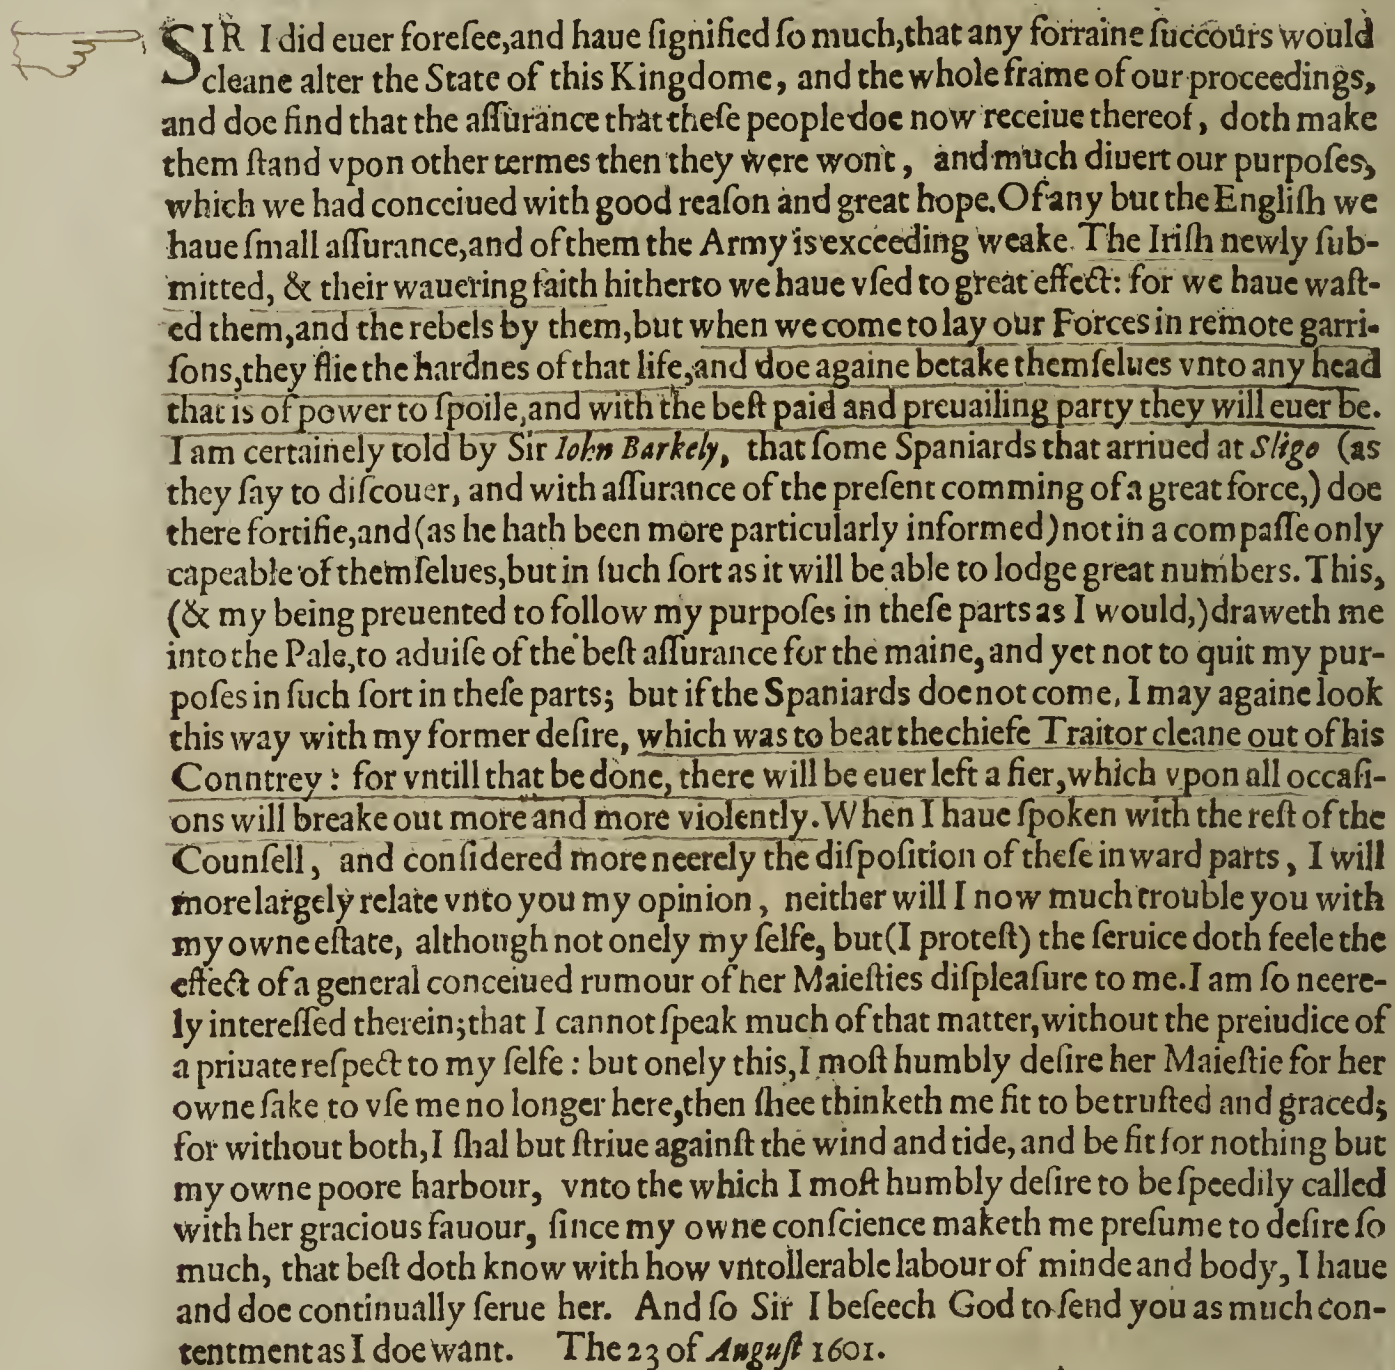 SIR I did euer foreſee,and haue ſignified ſo much,that any forraine ſuccours would
cleane alter the State of this Kingdome, and the whole frame of our proceedings,
and doe find that the aſſurance that theſe people doe now receiue thereof, doth make
them ſtand vpon other termes then they were wont, and much diuert our purpoſes,
which we had conceiued with good reaſon and great hope. Of any but the Engliſh we
haue ſmall aſſurance,and of them the Army is exceeding weake. The Iriſh newly ſub-
mitted, & their wauering faith hitherto we haue vſed to great effect: for we haue waſt-
ed them,and the rebels by them,but when we come to lay our Forces in remote garri-
ſons,they flie the hardnes of that life,and doe againe betake themſelues vnto any head
that is of power to ſpoile,and with the beſt paid and preuailing party they will euer be.
I am certainely told by Sir Iohn Barkely, that ſome Spaniards that arriued at Sligo (as
they ſay to diſcouer, and with aſſurance of the preſent comming of a great force,) doe
there fortifie,and (as he hath been more particularly informed) not in a compaſſe only
capeable of themſelues,but in ſuch ſort as it will be able to lodge great numbers. This,
(& my being preuented to follow my purpoſes in theſe parts as I would,) draweth me
into the Pale,to aduiſe of the beſt aſſurance for the maine, and yet not to quit my pur-
poſes in ſuch ſort in theſe parts; but if the Spaniards doe not come, I may againe look
this way with my former deſire, which was to beat the chiefe Traitor cleane out of his
Conntrey: for vntill that be done, there will be euer left a fier,which vpon all occaſi-
ons will breake out more and more violently. When I haue ſpoken with the reſt of the
Counſell, and conſidered more neerely the diſpoſition of theſe inward parts, I will
more largely relate vnto you my opinion, neither will I now much trouble you with
my owne eſtate, although not onely my ſelfe, but (I proteſt) the ſeruice doth feele the
effect of a general conceiued rumour of her Maieſties diſpleaſure to me. I am ſo neere-
ly intereſſed therein; that I cannot ſpeak much of that matter, without the preiudice of
a priuate reſpect to my ſelfe: but onely this, I moſt humbly deſire her Maieſtie for her
owne ſake to vſe me no longer here,then ſhee thinketh me fit to be truſted and graced;
for without both, I ſhal but ſtriue againſt the wind and tide, and be fit for nothing but
my owne poore harbour, vnto the which I moſt humbly deſire to be ſpeedily called
with her gracious fauour, ſince my owne conſcience maketh me preſume to deſire ſo
much, that beſt doth know with how vntollerable labour of minde and body, I haue
and doe continually ſerue her. And ſo Sir I beſeech God to ſend you as much con-
tentment as I doe want. The 23 of Auguſt 1601.